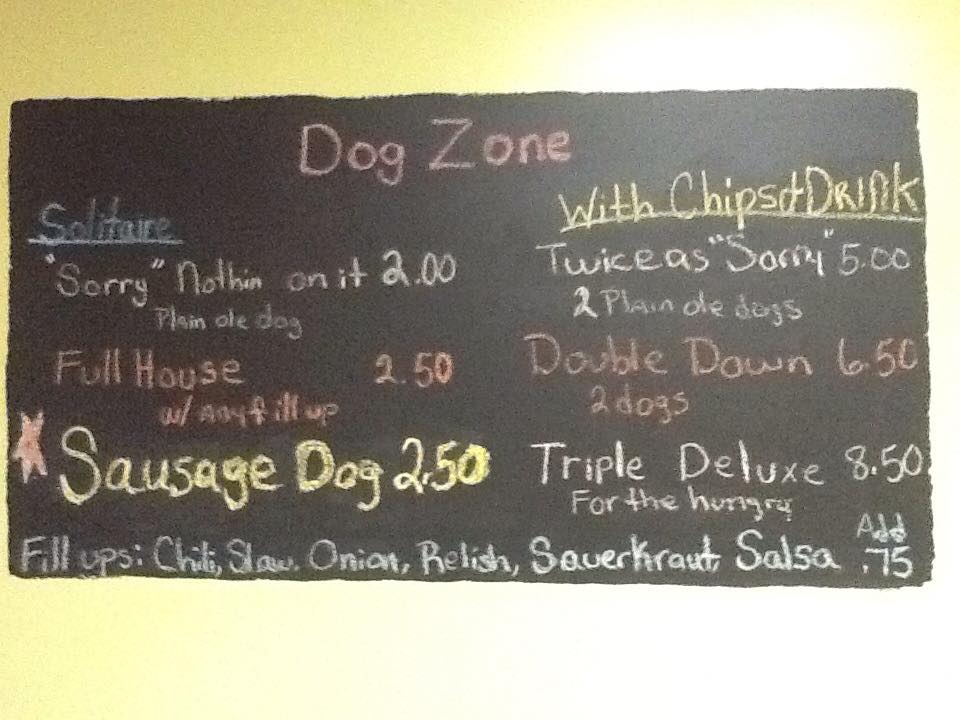 Dog Zone
Solitaire
"Sorry" Nothin on it 2.00
Plain ole dog
Full House 2.50
w/ any fill up
Sausage Dog 2.50
With Chips & DRINK
Twice as "Sorry" 5.00
2 Plain ole dogs
Double Down 6.50
2 dogs
Triple Deluxe 8.50
For the hungry
Fill ups: Chili, Slaw, Onion, Relish, Sauerkraut, Salsa Add .75